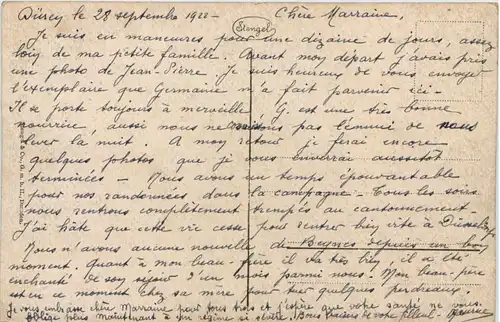 Düren, le 28 septembre 1922 - Chère Marraine,
Stengel
Je suis en manœuvres pour une dizaine de jours, assez
loin de ma petite famille. Avant mon départ j'avais pris
une photo de Jean-Pierre. Je suis heureux de vous envoyer
l'exemplaire que Germaine m'a fait parvenir ici -
Il se porte toujours à merveille. G. est une très bonne
nourrice, aussi nous ne connaissons pas l'ennui de nous
lever la nuit. A mon retour je ferai encore
quelques photos que je vous enverrai aussitôt
terminées - Nous avons un temps épouvantable
pour nos randonnées dans la campagne - Tous les soirs
nous rentrons complètement trempés au cantonnement -
J'ai hâte que cette vie cesse pour rentrer bien vite à
Nous n'avons aucune nouvelle de depuis un bon
moment. Quant à mon beau-père il va très bien, il a été
enchanté de son séjour d'un mois parmi nous. Mon beau-père
est en ce moment chez sa mère pour tuer quelques perdreaux.
Je vous embrasse chère Marraine pour tous trois et j'espère que votre santé ne vous
oblige plus maintenant à un régime si sévère. Bons baisers de votre filleul -
Stengel & Co., G. m. b. H., Dresden